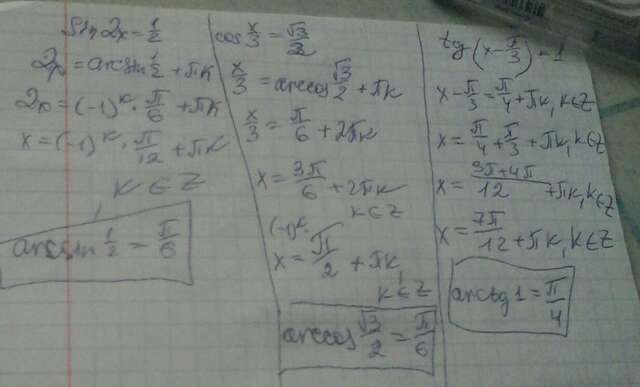 sin 2x = 1/2
2x = arcsin 1/2 + πk
2x = (-1)^k · π/6 + πk
x = (-1)^k · π/12 + πk
k ∈ Z
arcsin 1/2 = π/6
cos x/3 = √3/2
x/3 = arccos √3/2 + πk
x/3 = π/6 + 2πk
x = 3π/6 + 2πk
k ∈ Z
(-1)^k
x = π/2 + πk,
k ∈ Z
arccos √3/2 = π/6
tg (x - π/3) = 1
x - π/3 = π/4 + πk, k ∈ Z
x = π/4 + π/3 + πk, k ∈ Z
x = 3π+4π/12 + πk, k ∈ Z
x = 7π/12 + πk, k ∈ Z
arctg 1 = π/4